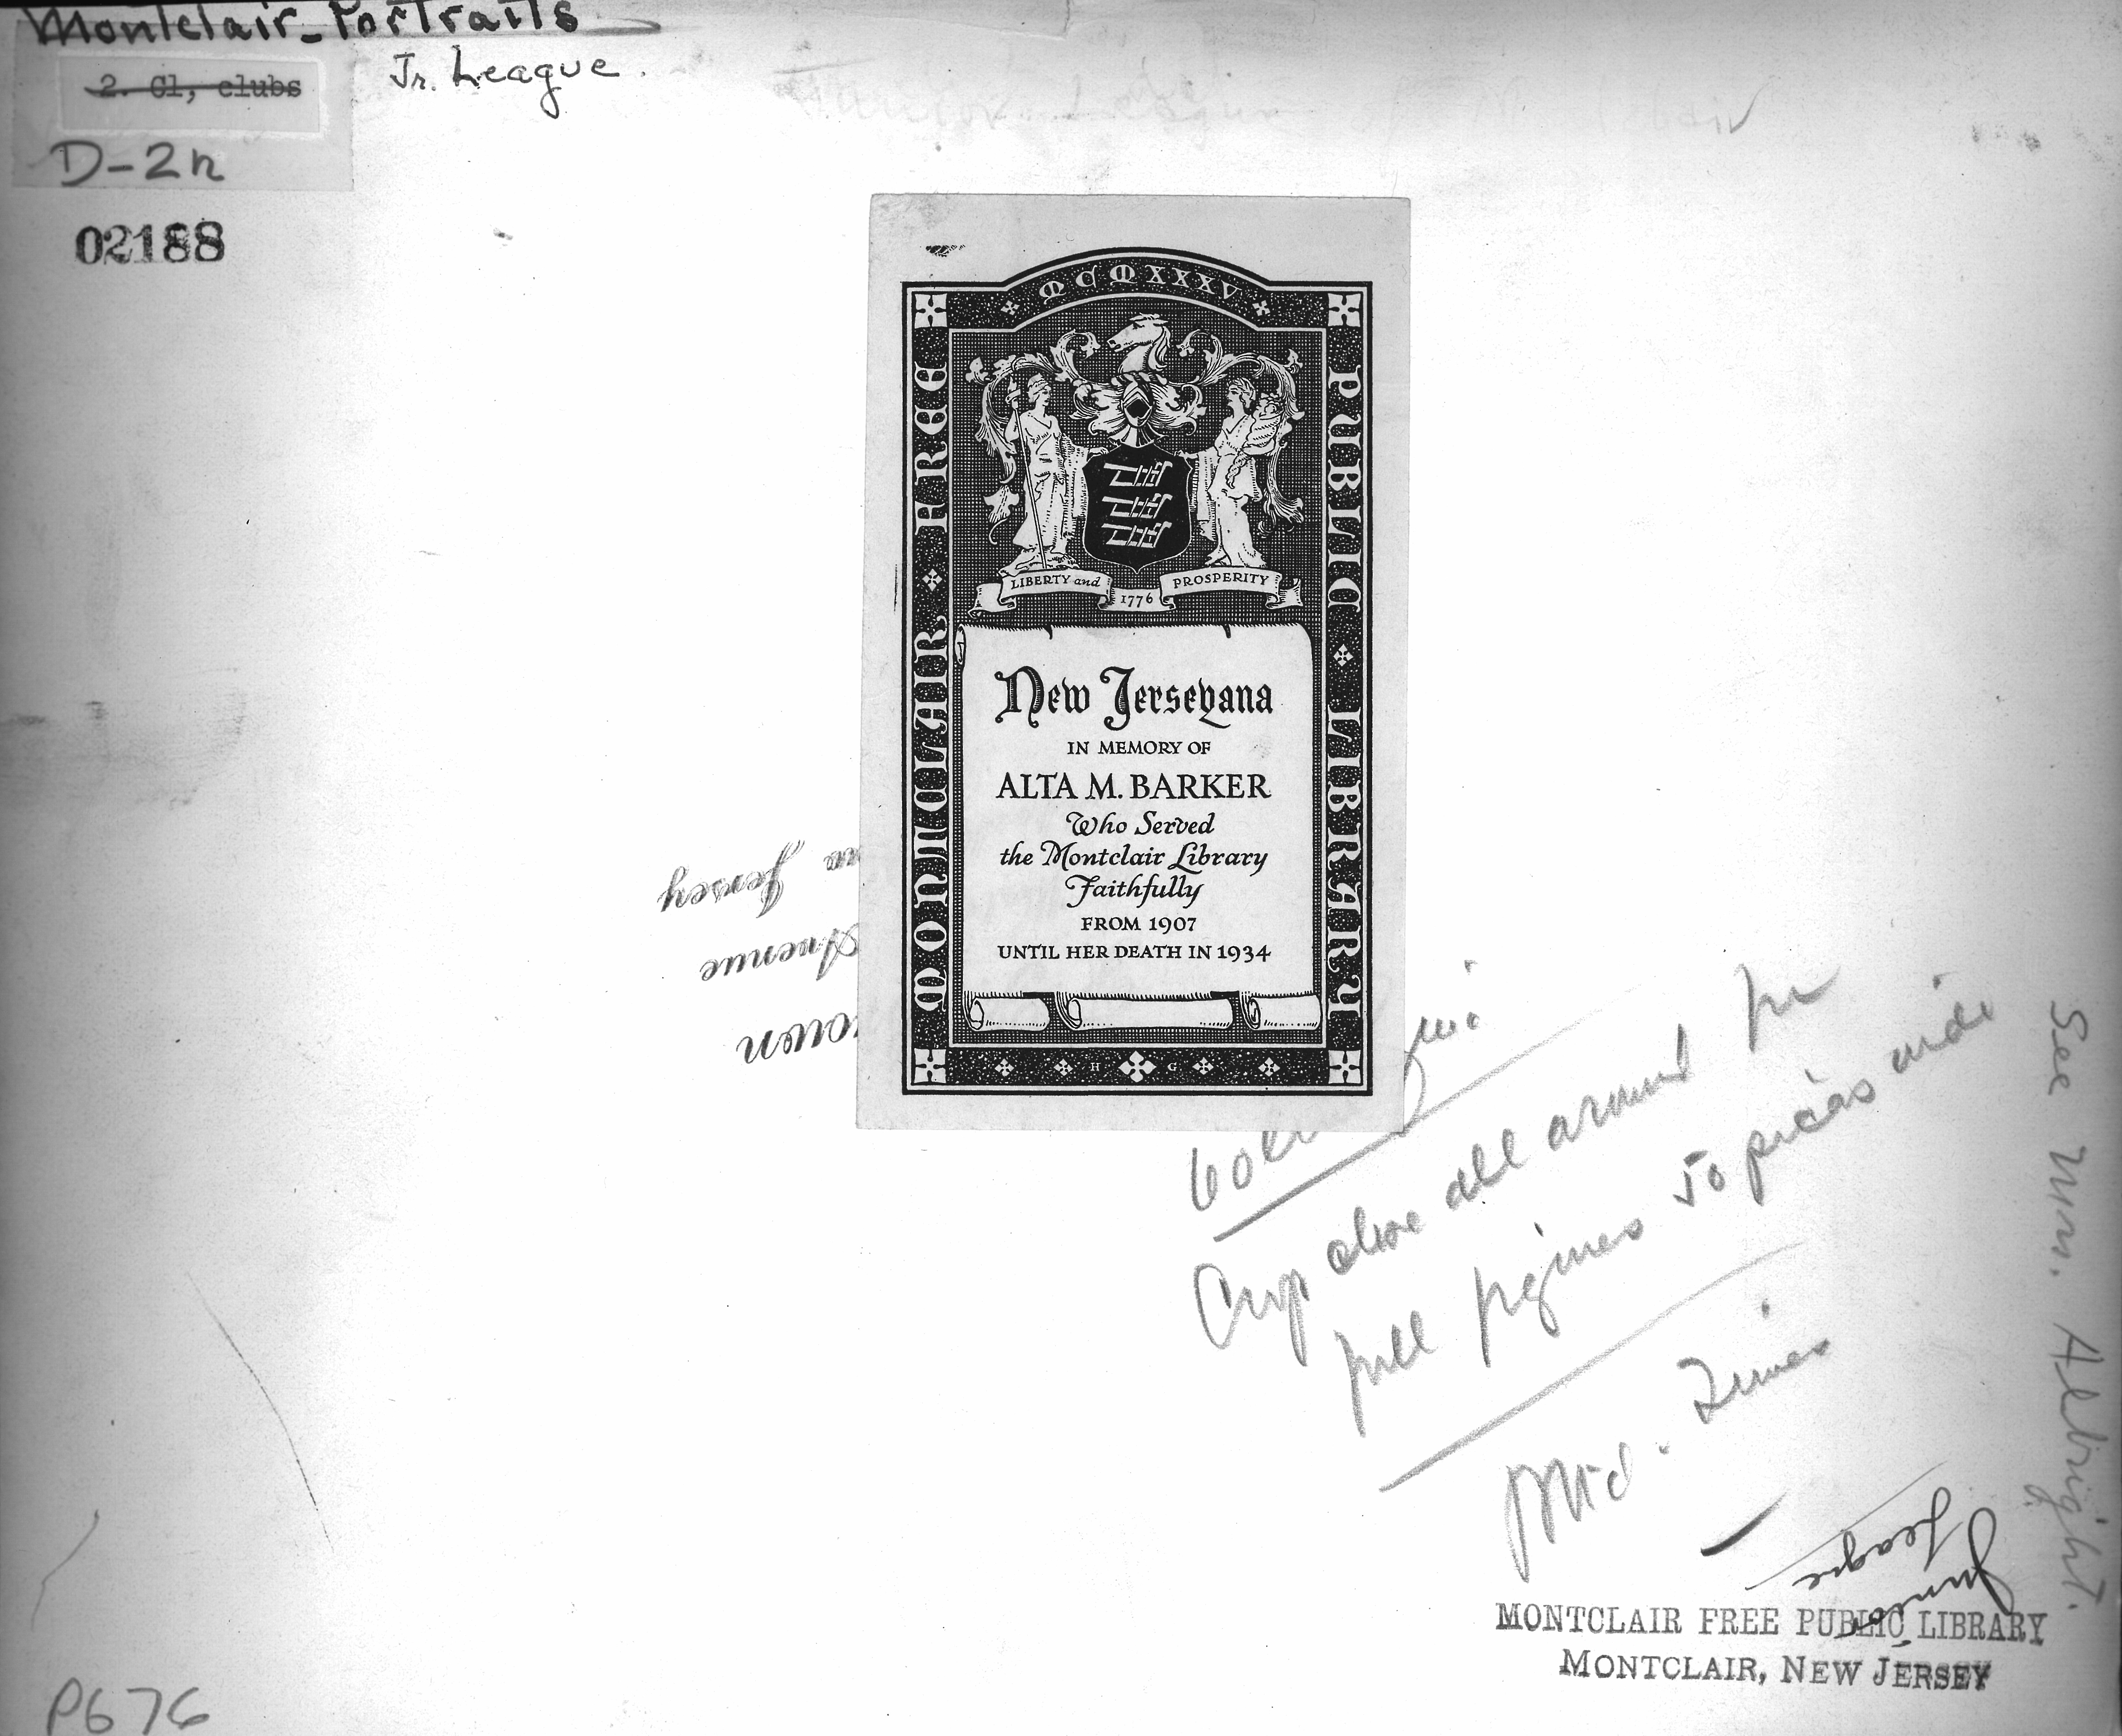 Montclair-Portraits
Jr. League.
2. Cl, clubs
D-2n
02188
Junior League of Montclair
MCMXXXV
MONTCLAIR FREE
PUBLIC LIBRARY
LIBERTY and
PROSPERITY
1776
New Jerseyana
IN MEMORY OF
ALTA M. BARKER
Who Served
the Montclair Library
Faithfully
FROM 1907
UNTIL HER DEATH IN 1934
H G
Avenue
Jersey
Crop close all around for
full figures 50 picas wide
Mtd. Times
See Mrs. Albright.
Junior
League
MONTCLAIR FREE PUBLIC LIBRARY
MONTCLAIR, NEW JERSEY
P676